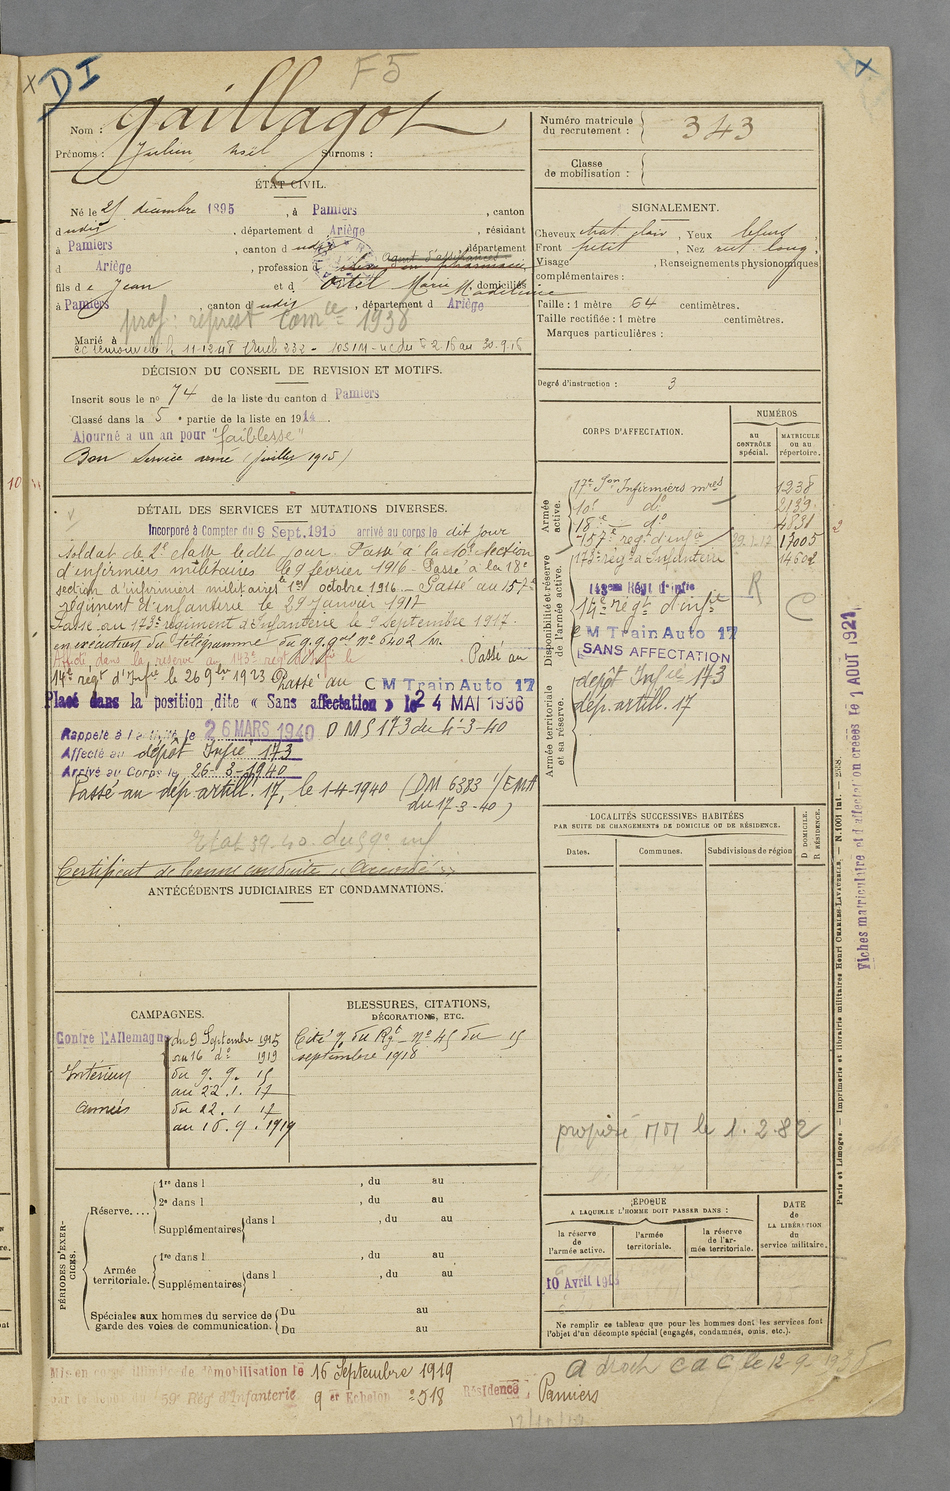 DI
F5
Nom : Gaillagot
Prénoms : Julien Noël Surnoms :
ÉTAT CIVIL.
Né le 25 décembre 1895, à Pamiers, canton
dudit, département d Ariège, résidant
à Pamiers, canton dudit, département
d Ariège, profession d
fils de Jean et d Ortet Marie Madeleine domiciliés
à Pamiers, canton dudit, département d Ariège
prof: représt Comce 1938
Marié à
DÉCISION DU CONSEIL DE REVISION ET MOTIFS.
Inscrit sous le no 74 de la liste du canton d Pamiers
Classé dans la 5e partie de la liste en 1914.
Ajourné a un an pour "faiblesse"
Bon Service armé (juillet 1915)
DÉTAIL DES SERVICES ET MUTATIONS DIVERSES.
Incorporé à Compter du 9 Sept. 1915 arrivé au corps le dit jour
soldat de 2e classe le dit jour. Passé à la 10e section
d'infirmiers militaires le 9 février 1916. Passé à la 18e
section d'infirmiers militaires le 1er octobre 1916. Passé au 157e
régiment d'infanterie le 29 Janvier 1917
Passé au 173e régiment d'infanterie le 9 Septembre 1917.
en exécution du télégramme du g.q.gal No 6402/m.
Affecté dans la réserve au 143e régt d'Infie le . Passé au
14e régt d'Infie le 26 9bre 1923 Passé au C M Train Auto 17
Placé dans la position dite « Sans affectation » le 24 MAI 1936
Rappelé à l'activité le 26 MARS 1940 D M S 173 du 4-3-40
Affecté au dépôt Infie 173
Arrivé au Corps le 26-3-1940
Passé au dép. artill. 17, le 1-4-1940 (DM 6383 1/EMA
du 17-3-40)
Certificat de bonne conduite "Accordé"
ANTÉCÉDENTS JUDICIAIRES ET CONDAMNATIONS.
CAMPAGNES.
Contre l'Allemagne du 9 Septembre 1915
au 16 do 1919
Intérieur du 9. 9. 15
au 22. 1. 17
Armées du 22. 1. 17
au 16. 9. 1919
BLESSURES, CITATIONS,
DÉCORATIONS, ETC.
Cité o/ du Rgt No 45 du 15
septembre 1918
PÉRIODES D'EXERCICES.
Réserve....
1re dans l , du au
2e dans l , du au
Supplémentaires dans l , du au
Armée territoriale.
1re dans l , du au
Supplémentaires dans l , du au
Spéciales aux hommes du service de
garde des voies de communication.
Du au
Du au
Numéro matricule
du recrutement : 343
Classe
de mobilisation :
SIGNALEMENT.
Cheveux chat. clair, Yeux bleus
Front petit, Nez rect. long
Visage , Renseignements physionomiques
complémentaires :
Taille : 1 mètre 64 centimètres.
Taille rectifiée : 1 mètre centimètres.
Marques particulières :
Degré d'instruction : 3
CORPS D'AFFECTATION.
NUMÉROS
AU CONTRÔLE spécial.
MATRICULE OU AU répertoire.
Armée active.
17e Son Infirmiers mres 1238
10e do 2139
18e do 4831
157e régt d'infie 17005
173e régt d'Infanterie 14602
Disponibilité et réserve de l'armée active.
143eme Régt d'Infie
14e régt d'infie
C M Train Auto 17
SANS AFFECTATION
R
C
Armée territoriale et sa réserve.
dépôt Infie 173
dép. artill. 17
LOCALITÉS SUCCESSIVES HABITÉES
PAR SUITE DE CHANGEMENTS DE DOMICILE OU DE RÉSIDENCE.
Dates.
Communes.
Subdivisions de région
D DOMICILE.
R RÉSIDENCE.
proposé MM le 1.2.82
ÉPOQUE
A LAQUELLE L'HOMME DOIT PASSER DANS :
la réserve de l'armée active.
l'armée territoriale.
la réserve de l'armée territoriale.
DATE de LA LIBÉRATION du service militaire.
Ne remplir ce tableau que pour les hommes dont les services font
l'objet d'un décompte spécial (engagés, condamnés, omis, etc.).
Paris et Limoges. — Imprimerie et librairie militaires Henri CHARLES-LAVAUZELLE. — N. 1001 int. — 2358.
Fiches matriculaire et d'affectation créées le 1 AOUT 1921
Mis en congé illimité de démobilisation le 16 Septembre 1919
par le dépôt du 59e Rég d'Infanterie 9e Echelon Résidence : Pamiers
a droit C a C le 12-9-